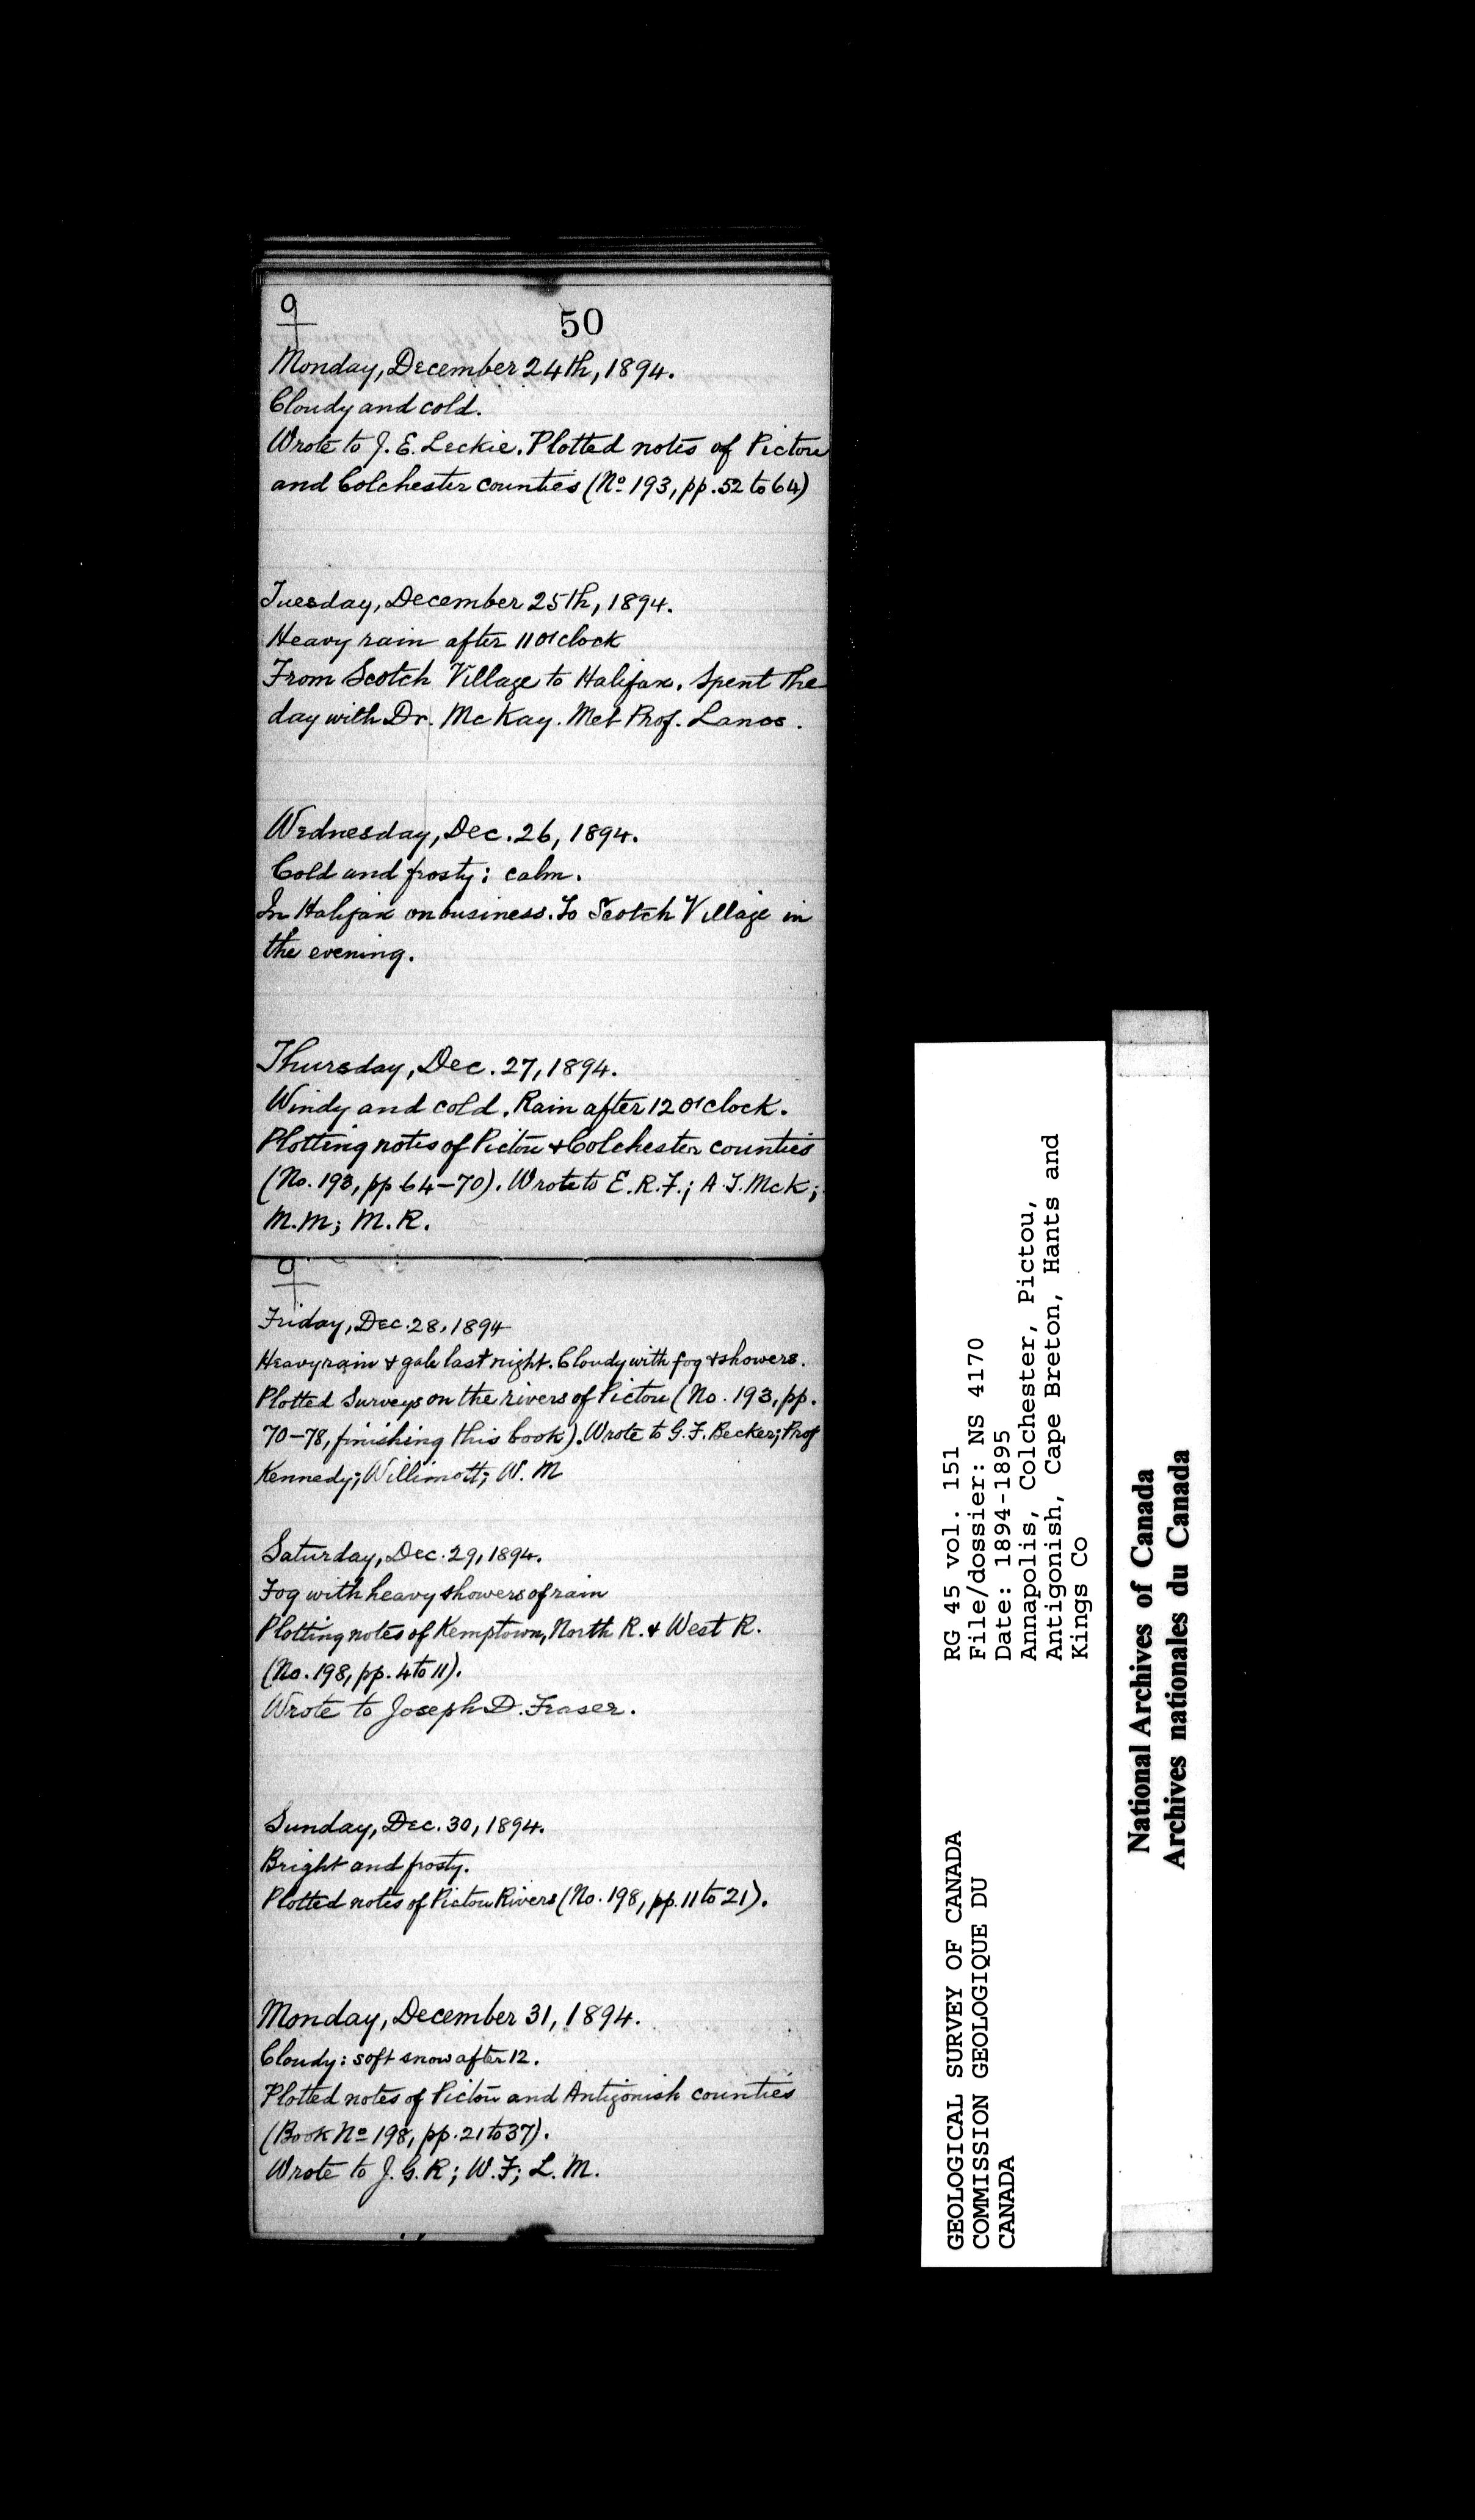 50
Monday, December 24th, 1894.
Cloudy and cold.
Wrote to J. E. Leckie. Plotted notes of Pictou
and Colchester counties (No 193, pp. 52 to 64)
Tuesday, December 25th, 1894.
Heavy rain after 11 o'clock
From Scotch Village to Halifax. Spent the
day with Dr. McKay. Met Prof. Lanos.
Wednesday, Dec. 26, 1894.
Cold and frosty; calm.
In Halifax on business. To Scotch Village in
the evening.
Thursday, Dec. 27, 1894.
Windy and cold. Rain after 12 o'clock.
Plotting notes of Pictou & Colchester counties
(No. 193, pp 64-70). Wrote to E.R.F.; A.J. McK;
M.M; M.R.
Friday, Dec. 28, 1894
Heavy rain & gale last night. Cloudy with fog & showers.
Plotted Surveys on the rivers of Pictou (No. 193, pp.
70-78, finishing this book). Wrote to G.F. Becker; Prof
Kennedy; Willimott; W. M
Saturday, Dec. 29, 1894.
Fog with heavy showers of rain
Plotting notes of Kemptown, North R. & West R.
(No. 198, pp. 4 to 11).
Wrote to Joseph D. Fraser.
Sunday, Dec. 30, 1894.
Bright and frosty.
Plotted notes of Pictou Rivers (No. 198, pp. 11 to 21).
Monday, December 31, 1894.
Cloudy: soft snow after 12.
Plotted notes of Pictou and Antigonish counties
(Book No 198, pp. 21 to 37).
Wrote to J.G.R; W.F; L.M.
GEOLOGICAL SURVEY OF CANADA
COMMISSION GEOLOGIQUE DU
CANADA
RG 45 vol. 151
File/dossier: NS 4170
Date: 1894-1895
Annapolis, Colchester, Pictou,
Antigonish, Cape Breton, Hants and
Kings Co
National Archives of Canada
Archives nationales du Canada